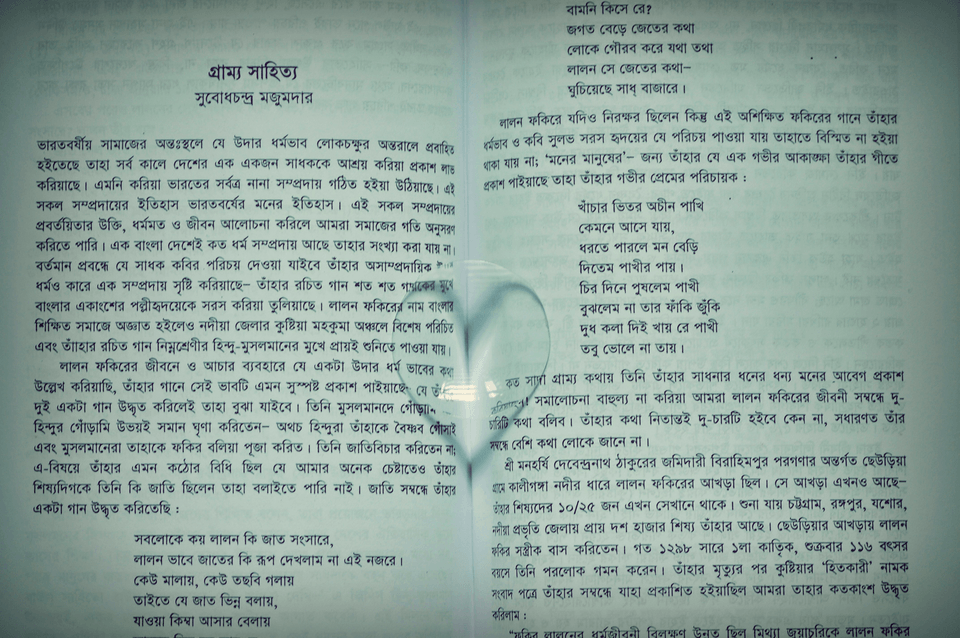 গ্রাম্য সাহিত্য
সুবোধচন্দ্র মজুমদার
ভারতবর্ষীয় সামাজের অন্তঃস্থলে যে উদার ধর্মভাব লোকচক্ষুর অন্তরালে প্রবাহিত
হইতেছে তাহা সর্ব কালে দেশের এক একজন সাধককে আশ্রয় করিয়া প্রকাশ লাভ
করিয়াছে। এমনি করিয়া ভারতের সর্বত্র নানা সম্প্রদায় গঠিত হইয়া উঠিয়াছে। এই
সকল সম্প্রদায়ের ইতিহাস ভারতবর্ষের মনের ইতিহাস। এই সকল সম্প্রদায়ের
প্রবর্তয়িতার উক্তি, ধর্মমত ও জীবন আলোচনা করিলে আমরা সমাজের গতি অনুসরণ
করিতে পারি। এক বাংলা দেশেই কত ধর্ম সম্প্রদায় আছে তাহার সংখ্যা করা যায় না।
বর্তমান প্রবন্ধে যে সাধক কবির পরিচয় দেওয়া যাইবে তাঁহার অসাম্প্রদায়িক
ধর্মও কারে এক সম্প্রদায় সৃষ্টি করিয়াছে– তাঁহার রচিত গান শত শত গায়কের মুখে
বাংলার একাংশের পল্লীহৃদয়েকে সরস করিয়া তুলিয়াছে। লালন ফকিরের নাম বাংলার
শিক্ষিত সমাজে অজ্ঞাত হইলেও নদীয়া জেলার কুষ্টিয়া মহকুমা অঞ্চলে বিশেষ পরিচিত
এবং তাঁাহার রচিত গান নিম্নশ্রেণীর হিন্দু-মুসলমানের মুখে প্রায়ই শুনিতে পাওয়া যায়।
লালন ফকিরের জীবনে ও আচার ব্যবহারে যে একটা উদার ধর্ম ভাবের কথা
উল্লেখ করিয়াছি, তাঁহার গানে সেই ভাবটি এমন সুস্পষ্ট প্রকাশ পাইয়াছে যে তাঁহার
দুই একটা গান উদ্ধৃত করিলেই তাহা বুঝা যাইবে। তিনি মুসলমানদে গোঁড়া
হিন্দুর গোঁড়ামি উভয়ই সমান ঘৃণা করিতেন– অথচ হিন্দুরা তাঁহাকে বৈষ্ণব গোঁসাই
এবং মুসলমানেরা তাহাকে ফকির বলিয়া পূজা করিত। তিনি জাতিবিচার করিতেন না;
এ-বিষয়ে তাঁহার এমন কঠোর বিধি ছিল যে আমার অনেক চেষ্টাতেও তাঁহার
শিষ্যদিগকে তিনি কি জাতি ছিলেন তাহা বলাইতে পারি নাই। জাতি সম্বন্ধে তাঁহার
একটা গান উদ্ধৃত করিতেছি :
সবলোকে কয় লালন কি জাত সংসারে,
লালন ভাবে জাতের কি রূপ দেখলাম না এই নজরে।
কেউ মালায়, কেউ তছবি গলায়
তাইতে যে জাত ভিন্ন বলায়,
যাওয়া কিম্বা আসার বেলায়
বামনি কিসে রে?
জগত বেড়ে জেতের কথা
লোকে গৌরব করে যথা তথা
লালন সে জেতের কথা–
ঘুচিয়েছে সাধ্ বাজারে।
লালন ফকিরে যদিও নিরক্ষর ছিলেন কিন্তু এই অশিক্ষিত ফকিরের গানে তাঁহার
ধর্মভাব ও কবি সুলভ সরস হৃদয়ের যে পরিচয় পাওয়া যায় তাহাতে বিস্মিত না হইয়া
থাকা যায় না; ‘মনের মানুষের’– জন্য তাঁহার যে এক গভীর আকাঙ্ক্ষা তাঁহার গীতে
প্রকাশ পাইয়াছে তাহা তাঁহার গভীর প্রেমের পরিচায়ক :
খাঁচার ভিতর অচীন পাখি
কেমনে আসে যায়,
ধরতে পারলে মন বেড়ি
দিতেম পাখীর পায়।
চির দিনে পুষলেম পাখী
বুঝলেম না তার ফাঁকি জুঁকি
দুধ কলা দিই খায় রে পাখী
তবু ভোলে না তায়।
কত সাদা গ্রাম্য কথায় তিনি তাঁহার সাধনার ধনের ধন্য মনের আবেগ প্রকাশ
করিয়াছেন! সমালোচনা বাহুল্য না করিয়া আমরা লালন ফকিরের জীবনী সম্বন্ধে দু-
চারিটি কথা বলিব। তাঁহার কথা নিতান্তই দু-চারটি হইবে কেন না, সধারণত তাঁর
সম্বন্ধে বেশি কথা লোকে জানে না।
শ্রী মনহর্ষি দেবেন্দ্রনাথ ঠাকুরের জমিদারী বিরাহিমপুর পরগণার অন্তর্গত ছেউড়িয়া
গ্রামে কালীগঙ্গা নদীর ধারে লালন ফকিরের আখড়া ছিল। সে আখড়া এখনও আছে–
তাঁহার শিষ্যদের ১০/২৫ জন এখন সেখানে থাকে। শুনা যায় চট্টগ্রাম, রঙ্গপুর, যশোর,
নদীয়া প্রভৃতি জেলায় প্রায় দশ হাজার শিষ্য তাঁহার আছে। ছেউড়িয়ার আখড়ায় লালন
ফকির সস্ত্রীক বাস করিতেন। গত ১২৯৮ সারে ১লা কার্ত্তিক, শুক্রবার ১১৬ বৎসর
বয়সে তিনি পরলোক গমন করেন। তাঁহার মৃত্যুর পর কুষ্টিয়ার ‘হিতকারী’ নামক
সংবাদ পত্রে তাঁহার সম্বন্ধে যাহা প্রকাশিত হইয়াছিল আমরা তাহার কতকাংশ উদ্ধৃত
করিলাম :
“ফকির লালনের ধর্মজীবনী বিলক্ষণ উন্নত ছিল মিথ্যা জুয়াচুরিকে লালন ফকির